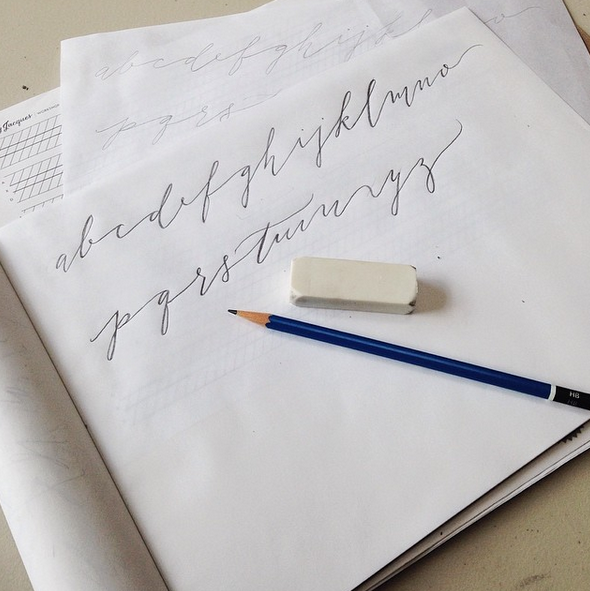 abcdefghijkl
pqrs
Jacques
abcdefghijklmno
pqrstuvwxyz
HB